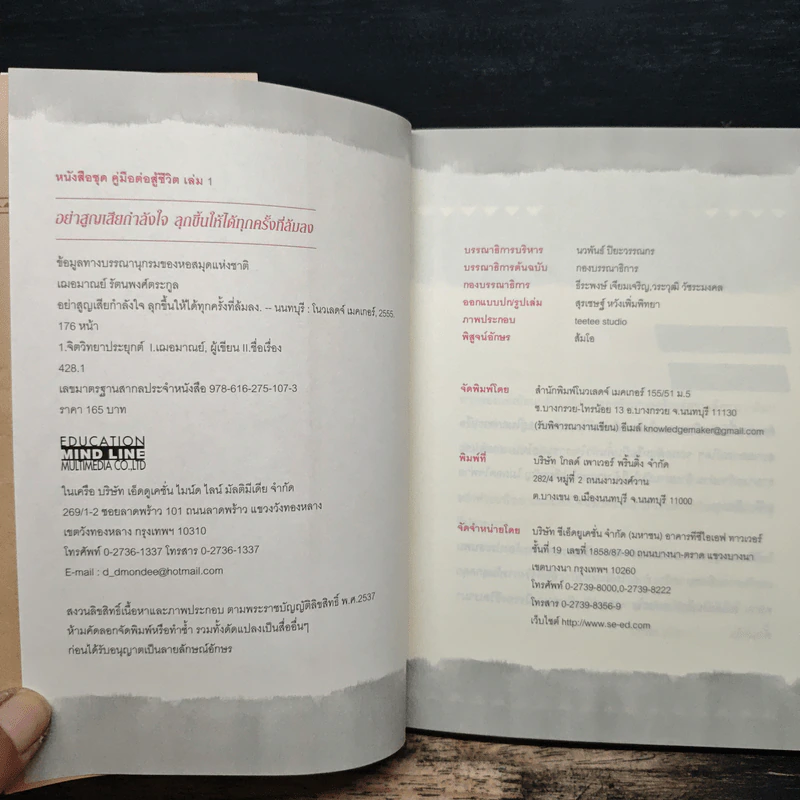 หนังสือชุด คู่มือต่อสู้ชีวิต เล่ม 1
อย่าสูญเสียกำลังใจ ลุกขึ้นให้ได้ทุกครั้งที่ล้มลง
ข้อมูลทางบรรณานุกรมของหอสมุดแห่งชาติ
เฌอมาณย์ รัตนพงศ์ตระกูล
อย่าสูญเสียกำลังใจ ลุกขึ้นให้ได้ทุกครั้งที่ล้มลง. -- นนทบุรี : โนวเลดจ์ เมคเกอร์, 2555.
176 หน้า
1.จิตวิทยาประยุกต์ I.เฌอมาณย์, ผู้เขียน II.ชื่อเรื่อง
428.1
เลขมาตรฐานสากลประจำหนังสือ 978-616-275-107-3
ราคา 165 บาท
EDUCATION
MIND LINE
MULTIMEDIA CO.,LTD
ในเครือ บริษัท เอ็ดดูเคชั่น ไมน์ด ไลน์ มัลติมีเดีย จำกัด
269/1-2 ซอยลาดพร้าว 101 ถนนลาดพร้าว แขวงวังทองหลาง
เขตวังทองหลาง กรุงเทพฯ 10310
โทรศัพท์ 0-2736-1337 โทรสาร 0-2736-1337
E-mail : d_dmondee@hotmail.com
สงวนลิขสิทธิ์เนื้อหาและภาพประกอบ ตามพระราชบัญญัติลิขสิทธิ์ พ.ศ.2537
ห้ามคัดลอกจัดพิมพ์หรือทำซ้ำ รวมทั้งดัดแปลงเป็นสื่ออื่นๆ
ก่อนได้รับอนุญาตเป็นลายลักษณ์อักษร
บรรณาธิการบริหาร นวพันธ์ ปิยะวรรณกร
บรรณาธิการต้นฉบับ กองบรรณาธิการ
กองบรรณาธิการ ธีระพงษ์ เจียมเจริญ,วระวุฒิ วัชระมงคล
ออกแบบปก/รูปเล่ม สุรเชษฐ์ หวังเพิ่มพิทยา
ภาพประกอบ teetee studio
พิสูจน์อักษร ส้มโอ
จัดพิมพ์โดย สำนักพิมพ์โนวเลดจ์ เมคเกอร์ 155/51 ม.5
ซ.บางกรวย-ไทรน้อย 13 อ.บางกรวย จ.นนทบุรี 11130
(รับพิจารณางานเขียน) อีเมล์ knowledgemaker@gmail.com
พิมพ์ที่ บริษัท โกลด์ เพาเวอร์ พริ้นติ้ง จำกัด
282/4 หมู่ที่ 2 ถนนงามวงศ์วาน
ต.บางเขน อ.เมืองนนทบุรี จ.นนทบุรี 11000
จัดจำหน่ายโดย บริษัท ซีเอ็ดยูเคชั่น จำกัด (มหาชน) อาคารทีซีไอเอฟ ทาวเวอร์
ชั้นที่ 19 เลขที่ 1858/87-90 ถนนบางนา-ตราด แขวงบางนา
เขตบางนา กรุงเทพฯ 10260
โทรศัพท์ 0-2739-8000,0-2739-8222
โทรสาร 0-2739-8356-9
เว็บไซต์ http://www.se-ed.com